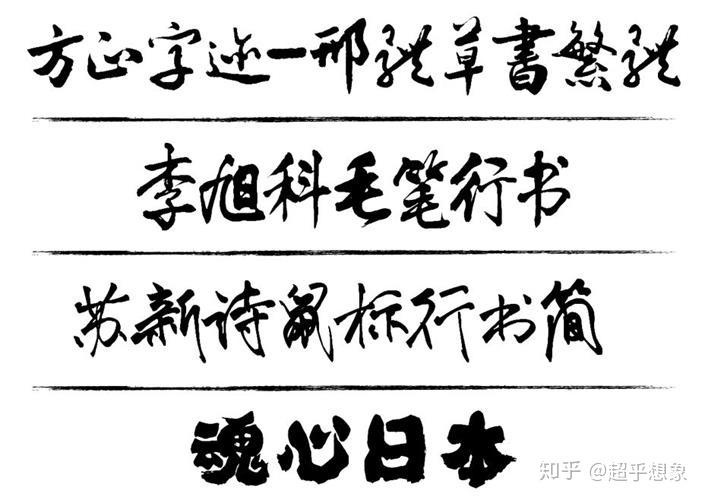 方正字迹一邢體草書繁體
李旭科毛笔行书
苏新诗鼠标行书简
魂心日本
知乎 @超乎想象